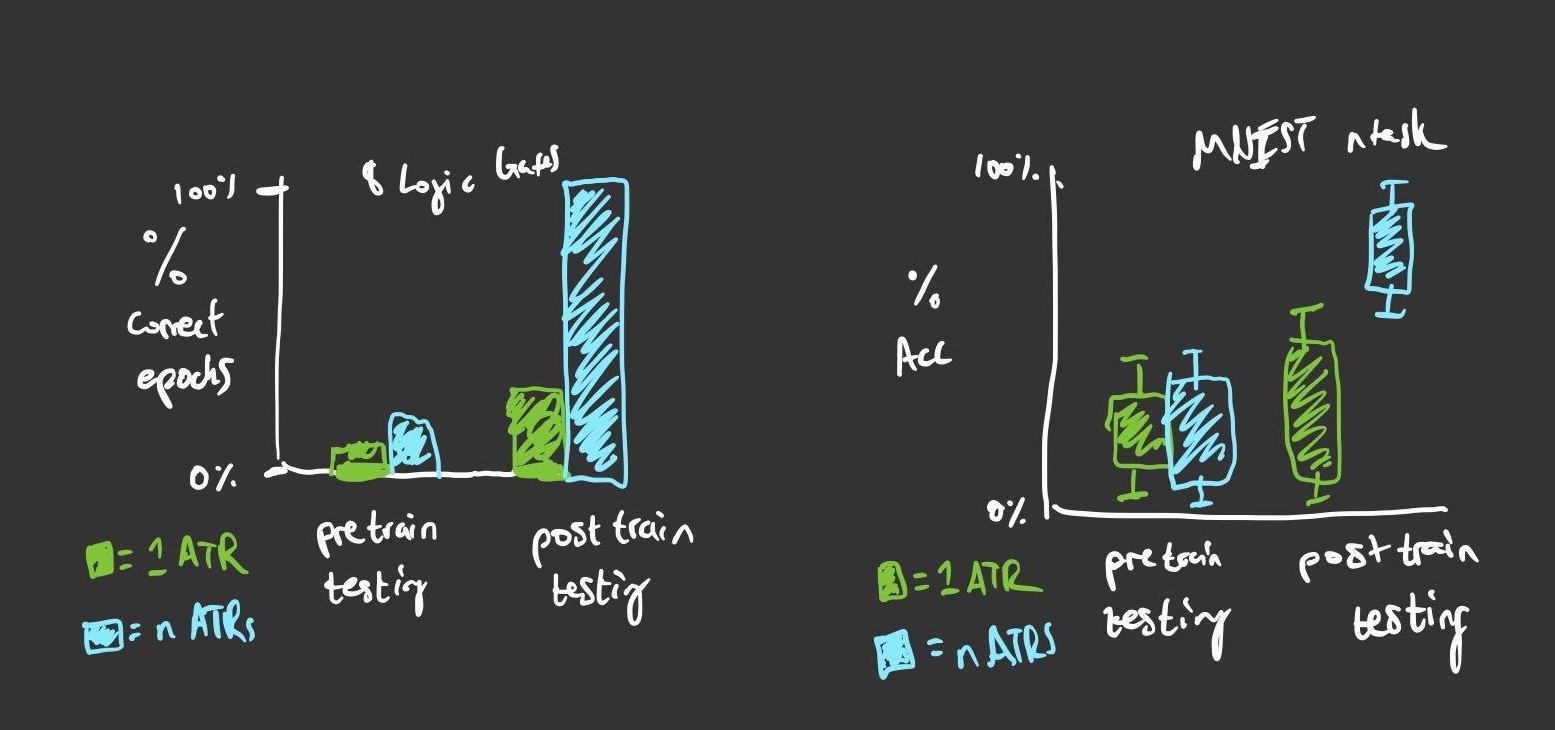 8 Logic Gates
100%
%
Correct
epochs
0%
pretrain
testing
post train
testing
= 1 ATR
= n ATRs
MNIST n task
100%
%
Acc
0%
pretrain
testing
post train
testing
= 1 ATR
= n ATRS